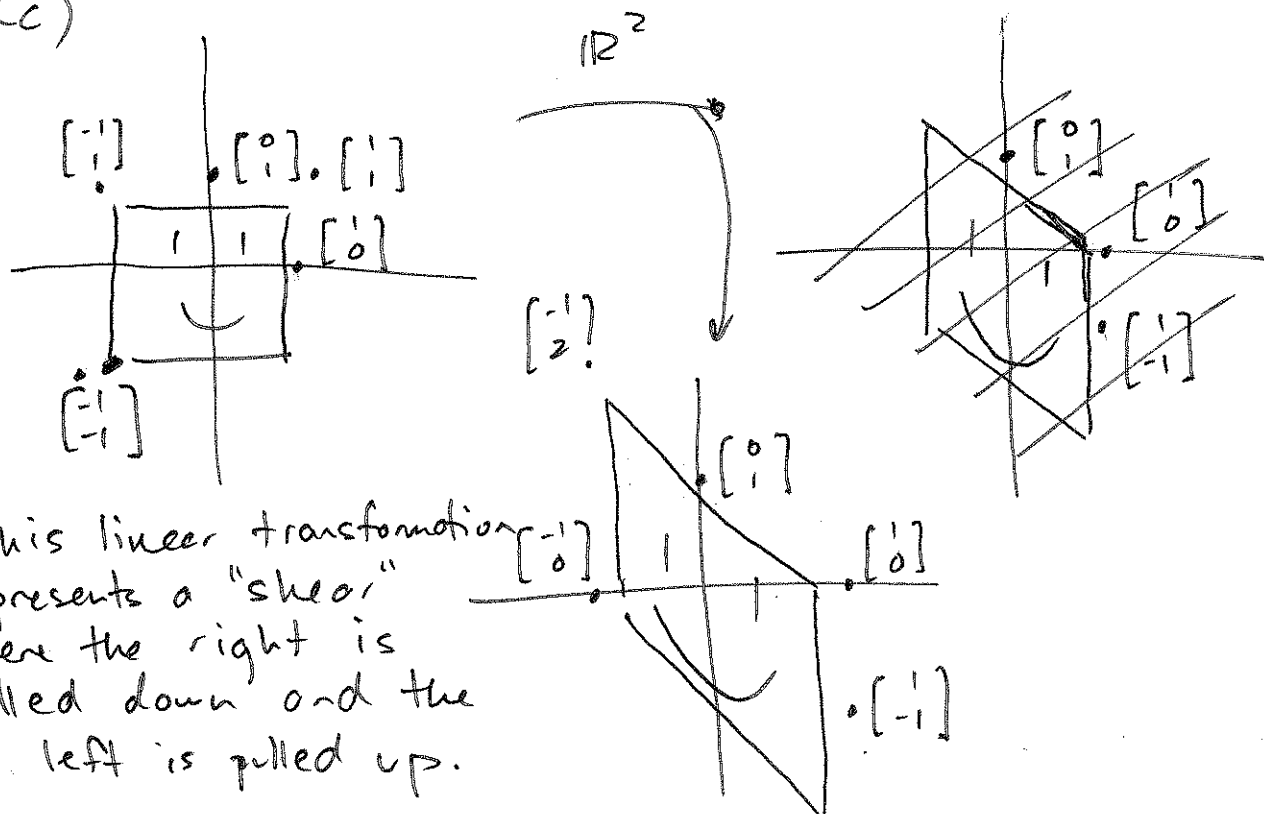 -c)
ℝ²
[-1 1]
[0 1]
[1 1]
[1 0]
[-1 -1]
[0 1]
[1 0]
[1 -1]
[-1 2]
[0 1]
[-1 0]
[1 0]
[1 -1]
his linear transformation
presents a "shear"
ere the right is
lled down and the
left is pulled up.